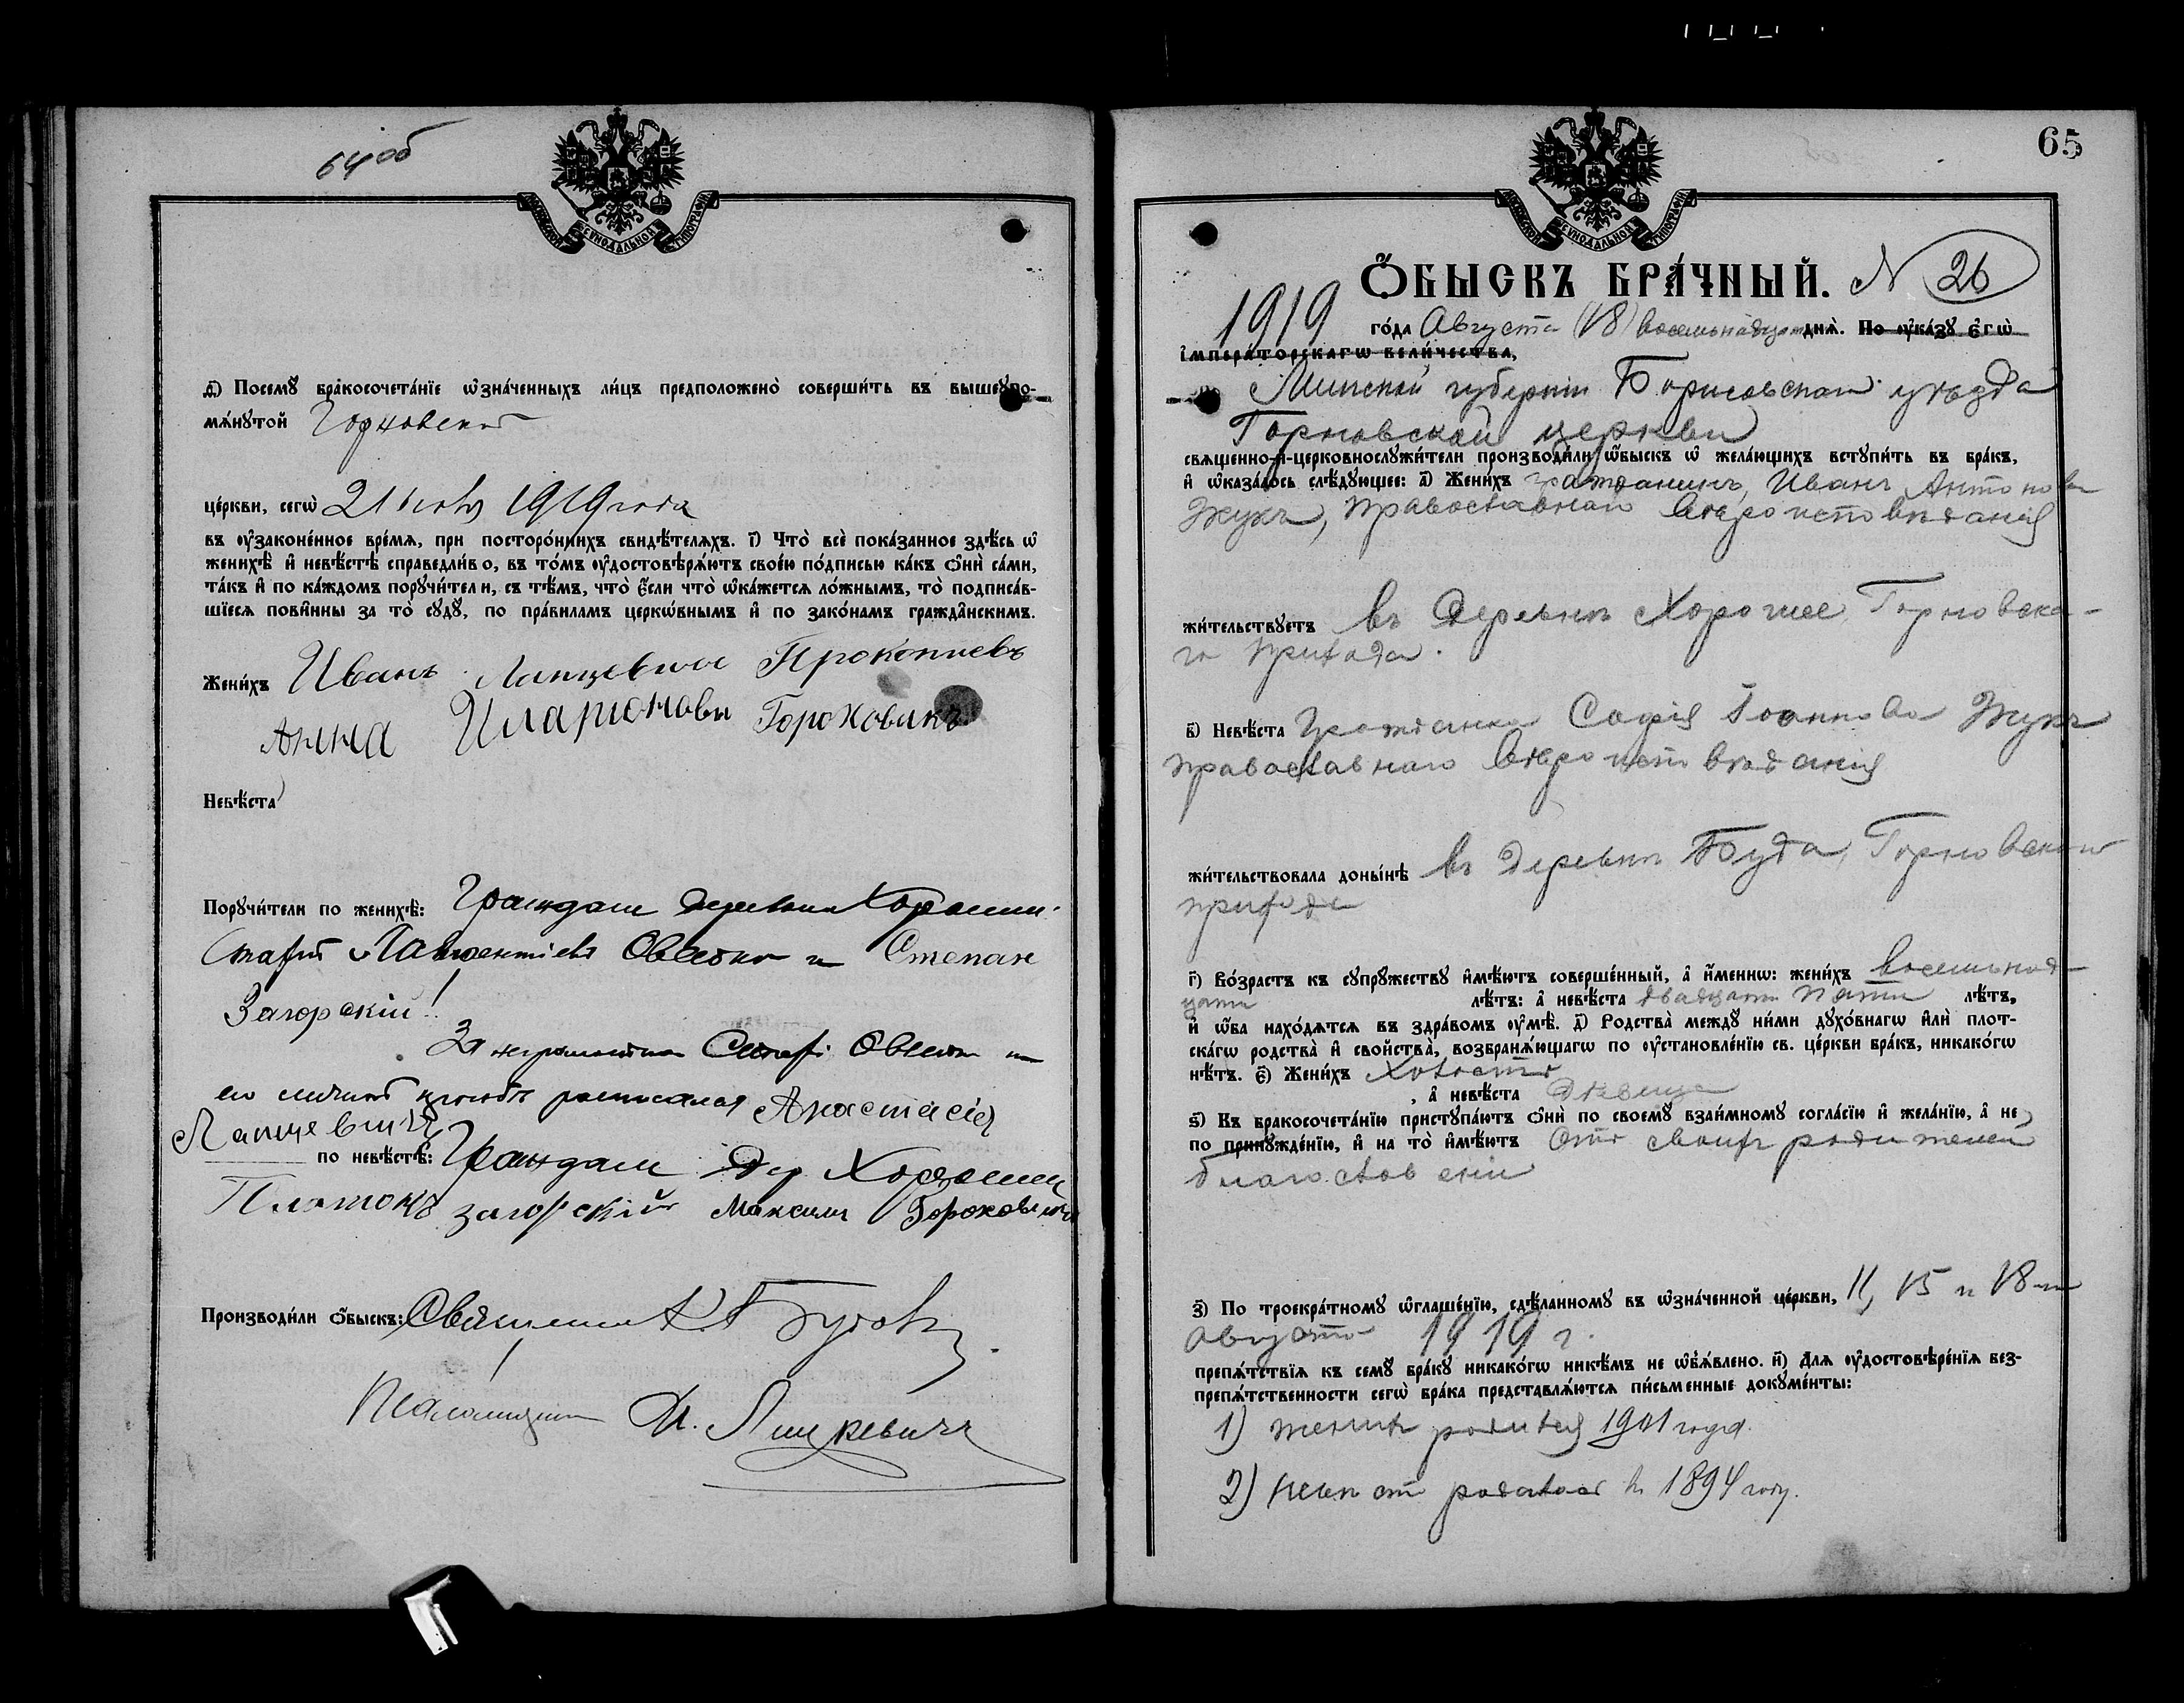 64об
СѴНОДАЛЬНОЙ ТИПОГРАФІИ
д҃) Посемꙋ бра́косочета́нїе ѡ҆зна́ченныхъ ли́цъ предположено̀ соверши́ть въ вышеꙋпо-
мѧ́нꙋтой Горновской
це́ркви, сегѡ̀ 21 іюля 1919 года
въ ᲂу҆зако́нное вре́мѧ, при посторо́ннихъ свидѣ́телѧхъ. і҃) Что̀ всѐ пока́занное здѣ́сь ѡ҆
женихѣ̀ и҆ невѣ́стѣ справедли́во, въ то́мъ ᲂу҆достовѣрѧ́ютъ свое́ю по́дписью ка́къ ѻ҆нѝ са́ми,
та́къ и҆ по ка́ждомъ порꙋчи́тели, съ тѣ́мъ, что̀ є҆́сли что̀ ѡ҆ка́жетсѧ ло́жнымъ, то̀ подписа́в-
шїесѧ пови́нны за то̀ сꙋдꙋ̀, по пра́виламъ церко́внымъ и҆ по зако́намъ гражда́нскимъ.
Жени́хъ Иванъ Лапцевичъ Прокопиевъ
Анна Иларионова Гороховикъ
Невѣ́ста
Порꙋчи́тели по женихѣ̀: Граждане деревни
Лаврентіевъ и Степан
Загорскій
За неграмотна
его личной просьбѣ росписался Анастасія
Лапцевичъ
по невѣ́стѣ: Граждане дер.
Платонъ загорскій Максим Гороховикъ
Производи́ли ѻ҆́быскъ: Священник
Псаломщикъ
65
СѴНОДАЛЬНОЙ ТИПОГРАФІИ
Ѻ҆БЫСКЪ БРА́ЧНЫЙ. N 26
1919 го́да Августа (18) восемьнадцат днѧ̀. По ᲂу҆ка́зꙋ є҆гѡ̀
і҆мпера́торскагѡ вели́чества,
Минской губерніи Борисовскаго уѣзда
Горновской церкви
свѧще́нно-и҆-церковнослꙋжи́тели производи́ли ѻ҆́быскъ ѡ҆ жела́ющихъ встꙋпи́ть въ бра́къ,
и҆ ѡ҆каза́лось слѣ́дꙋющее: а҃) Жени́хъ гражданинъ, Иванъ Антонова
Жукъ, православнаго вѣроисповѣданія
жи́тельствꙋетъ въ деревнѣ Хорошее Горновска-
го прихода.
в҃) Невѣ́ста Гражданка Софія Іоаннова Жукъ
православнаго вѣроисповѣданія
жи́тельствовала доны́нѣ въ деревнѣ Буда, Горновскаго
прихода
г҃) Во́зрастъ къ сꙋпрꙋ́жествꙋ и҆мѣ́ютъ соверше́нный, а҆ и҆́меннѡ: жени́хъ восемьнад-
цати лѣ́тъ: а҆ невѣ́ста двадцати пяти лѣ́тъ,
и҆ ѻ҆́ба нахо́дѧтсѧ въ здра́вомъ ᲂу҆мѣ̀. д҃) Родства̀ междꙋ̀ ни́ми дꙋхо́внагѡ и҆лѝ плот-
ска́гѡ родства̀ и҆ сво́йства̀, возбранѧ́ющагѡ по ᲂу҆становле́нїю св. це́ркви бра́къ, никако́гѡ
нѣ́тъ. є҃) Жени́хъ Холостъ
, а҆ невѣ́ста Дѣвица
ѕ҃) Къ бракосочета́нїю пристꙋпа́ютъ ѻ҆нѝ по своемꙋ̀ взаи́мномꙋ согла́сїю и҆ жела́нїю, а҆ не
по принꙋжде́нїю, и҆ на то̀ и҆мѣ́ютъ отъ своихъ родителей
благословеніи
з҃) По троекра́тномꙋ ѡ҆глаше́нїю, сдѣ́ланномꙋ въ ѡ҆зна́ченной це́ркви, 11, 15 и 18-го
августа 1919 г.
препѧ́тствїѧ къ семꙋ̀ бра́кꙋ никако́гѡ никѣ́мъ не ѡ҆б̾ѧ́влено. и҃) Длѧ ᲂу҆достовѣре́нїѧ без-
препѧ́тственности сегѡ̀ бра́ка представлѧ́ютсѧ пи́сьменные докꙋме́нты:
1) женихъ родился 1901 года.
2) невѣста родилась въ 1894 году.